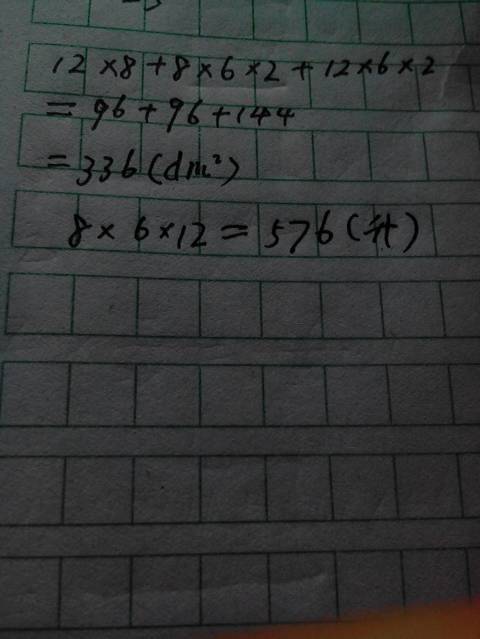 12×8+8×6×2+12×6×2
=96+96+144
=336(dm²)
8×6×12=576(升)